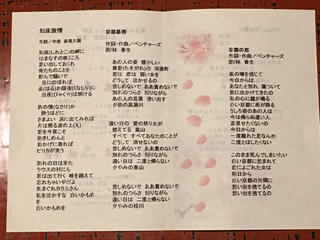 知床旅情
作詞／作曲 森繁久彌
知床(しれとこ)の岬に
はまなすの咲くころ
思い出しておくれ
俺たちのことを
飲んで騒いで
丘にのぼれば
遥(はる)か国後(くなしり)に
白夜(びゃくや)は明ける
旅の情(なさけ)か
酔うほどに
さまよい 浜に出てみれば
月は照る波の上
君を今宵こそ
抱きしめんと
岩かげに寄れば
ピリカが笑う
別れの日は来た
ラウスの村にも
君は出て行く 峠を越えて
忘れちゃいやだよ
気まぐれカラスさん
私を泣かすな 白いかもめ
を
白いかもめを
京都慕情
作詞・作曲／ベンチャーズ
訳詞 林 春生
あの人の姿 懐かしい
黄昏(たそがれ)の 河原町
恋は 恋は 弱い女を
どうして 泣かせるの
苦しめないで ああ責めないで
別れのつらさ 知りながら
あの人の言葉 想い出す
夕焼の高瀬川
遠い日の 愛の残り火が
燃えてる 嵐山
すべて すべてあなたのことが
どうして 消せないの
苦しめないで ああ責めないで
別れのつらさ 知りながら
遠い日は 二度と帰らない
夕やみの東山
苦しめないで ああ責めないで
別れのつらさ 知りながら
遠い日は 二度と帰らない
夕やみの桂川
京都の恋
作詞・作曲／ベンチャーズ
訳詞 林 春生
風の噂を信じて
今日からは
あなたと別れ 傷ついて
旅に出かけて来たの
私の心に鐘が鳴る
白い京都に雨が降る
うしろ姿のあの人は
今は帰らぬ遠い人
涙見せたくないの
今日からは
一歩離れた恋なんか
二度とはしたくない
このまま死んでしまいたい
白い京都に包まれて
恋によごれた女は
明日から
白い京都の片隅に
想い出を捨てるの
想い出を捨てるの